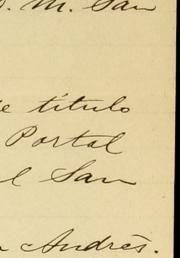 M. San
título
Portal
San
Andrés.